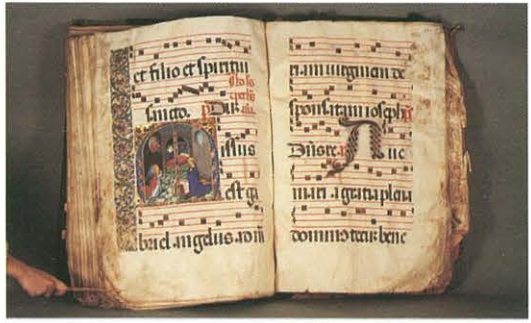 et filio et spiritui
sancto.
Missus
est ga
briel angelus ad
riam uirginem de
sponsatam ioseph
Aue
maria gratia plena
dominus tecum bene